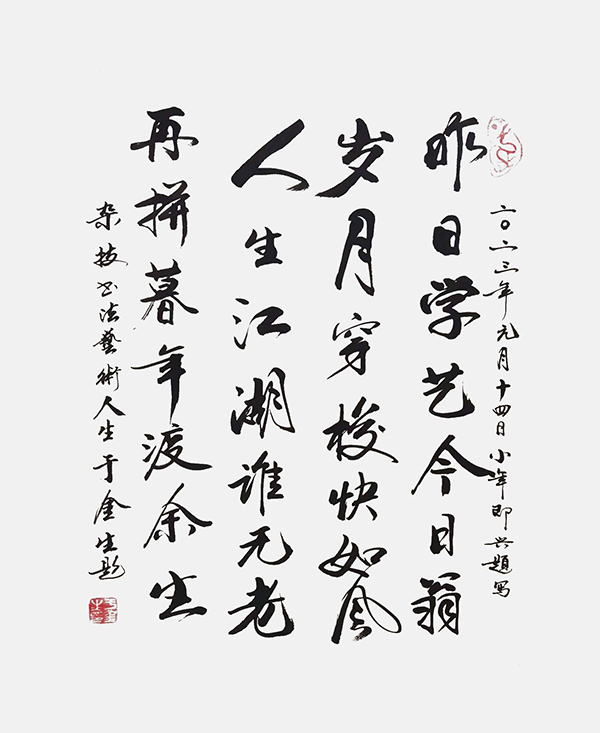 二〇二三年元月十四日小年即兴题写
昨日学艺今日翁
岁月穿梭快如风
人生江湖谁无老
再拼暮年渡余生
杂技书法藝術人生于金生题